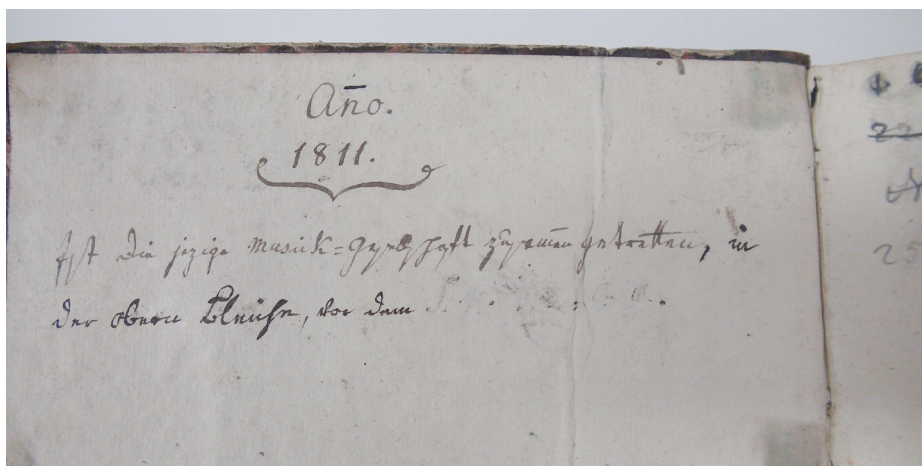 Año.
1811.
Ist die jezige Musick=Gesellschaft zusamen getretten, in
der obern Bleiche, vor dem
22
25